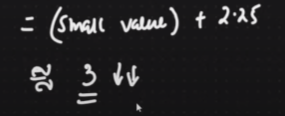 = (small value) + 2.25
≅ 3 ↓↓